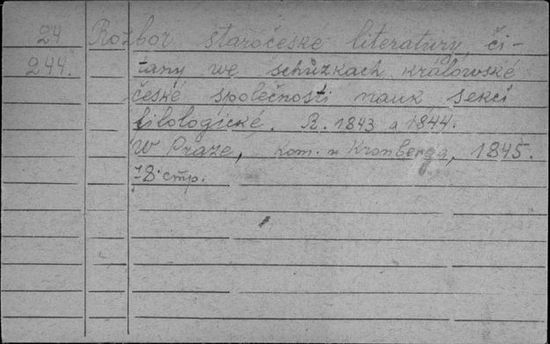 24 Rozbor staročeské literatury, či-
244. tany we schůzkach králowské
české společnosti nauk sekcí
filologické. R. 1843 a 1844.
W Praze, kom. u Kronberga, 1845.
78 stp.